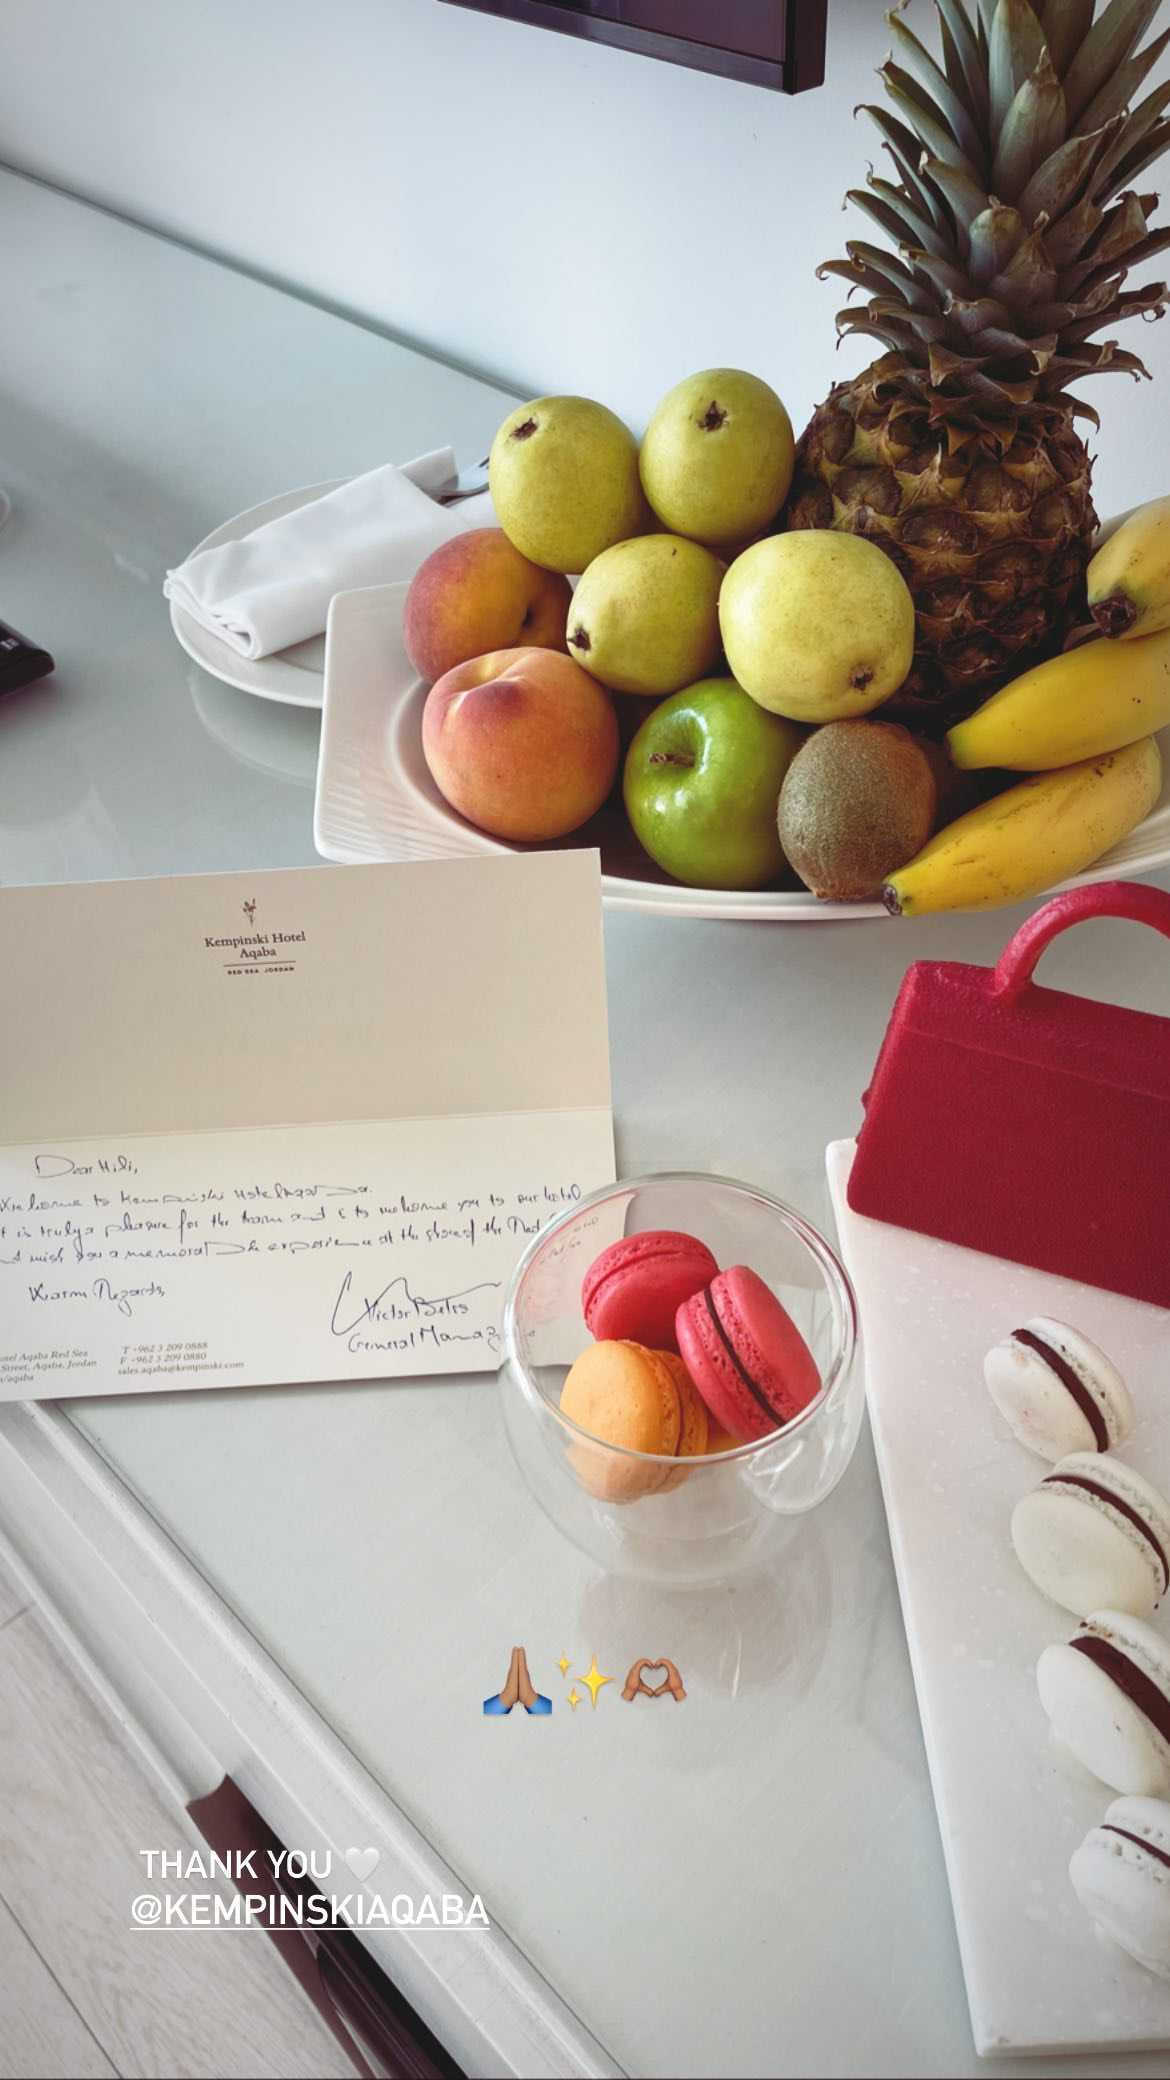 Kempinski Hotel
Aqaba
RED SEA JORDAN
Dear Hili,
Welcome to Kempinski Hotel Aqaba.
t is truly a pleasure for the team and I to welcome you to our hotel
I wish you a memorable experience at the shore of the Red
Warm Regards,
Victor
General Manag
otel Aqaba Red Sea
Street, Aqaba, Jordan
/aqaba
T +962 3 209 0888
F +962 3 209 0880
sales.aqaba@kempinski.com
🙏🏽✨🫶🏽
THANK YOU 🤍
@KEMPINSKIAQABA